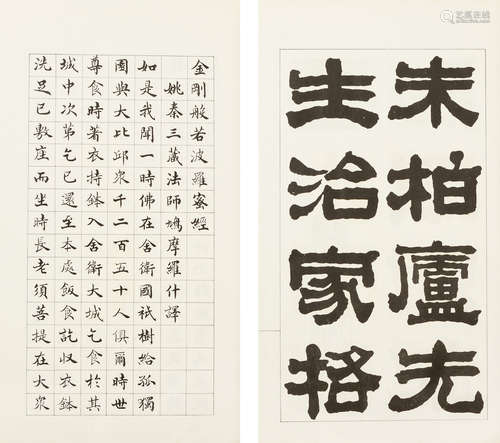 朱柏廬先
生治家格
金剛般若波羅蜜經
姚秦三藏法師鳩摩羅什譯
如是我聞一時佛在舍衛國祇樹給孤獨
園與大比邱眾千二百五十人俱爾時世
尊食時著衣持鉢入舍衛大城乞食於其
城中次第乞已還至本處飯食訖収衣鉢
洗足已敷座而坐時長老須菩提在大眾
艺狐在线